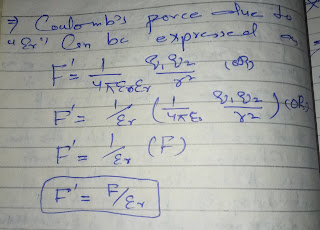 ⇒ Coulomb's force due to
"εr" Can be expressed as
F' = 1/4πε₀εr q₁q₂/r² (or)
F' = 1/εr (1/4πε₀ q₁q₂/r²) (or)
F' = 1/εr (F)
F' = F/εr